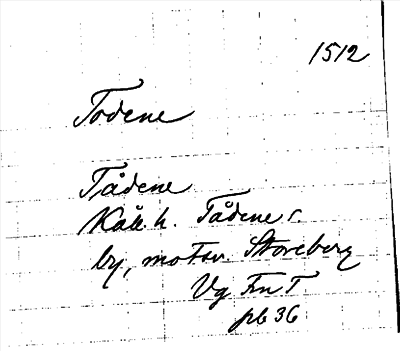 1512
Todene
Tådene
Kåk. h. Tådene s.
by, motsv. Storeberg
Vg Fn T.
pb 36